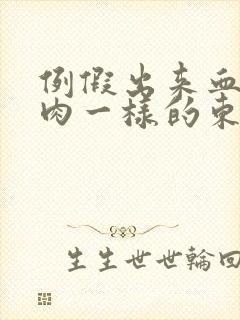 例假出来血
肉一样的东
生生世世輪回